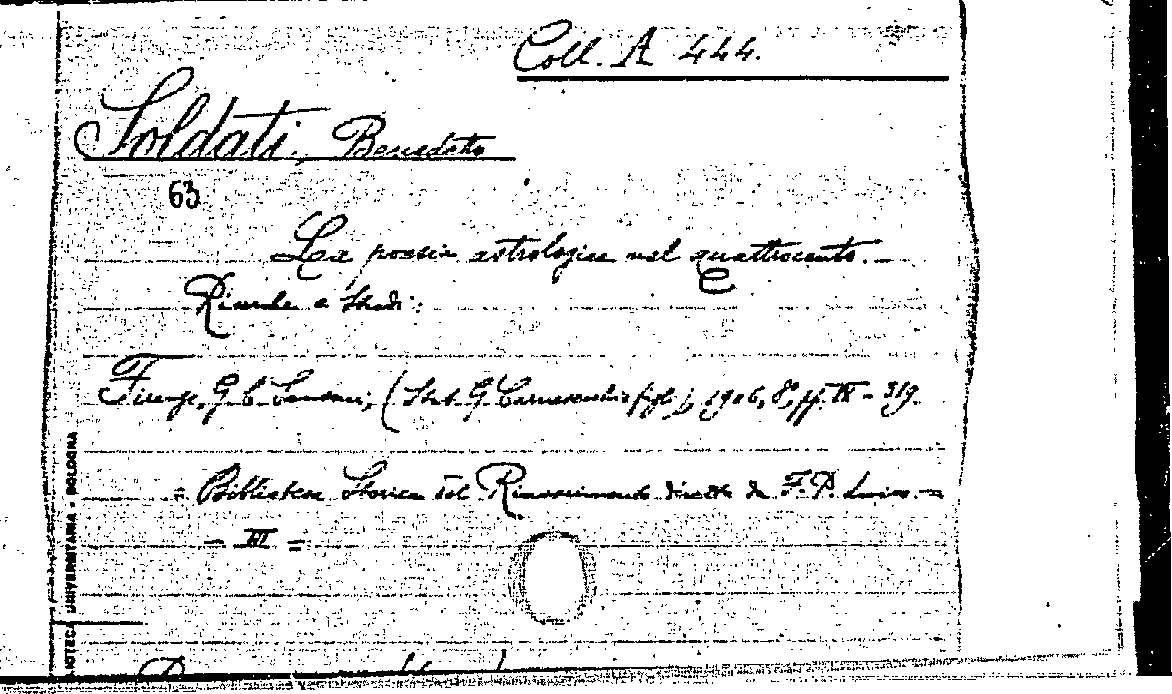 Coll. A 444.
Soldati, Benedetto
63
La poesia astrologica nel quattrocento. -
Ricerche e studi:
Firenze, G. C. Sansoni, (Stab. G. Carnesecchi e figli), 1906, 8°, pp. IX - 319.
= Biblioteca Storica del Rinascimento diretta da F. P. Luiso. -
- III =
BIBLIOTECA UNIVERSITARIA - BOLOGNA